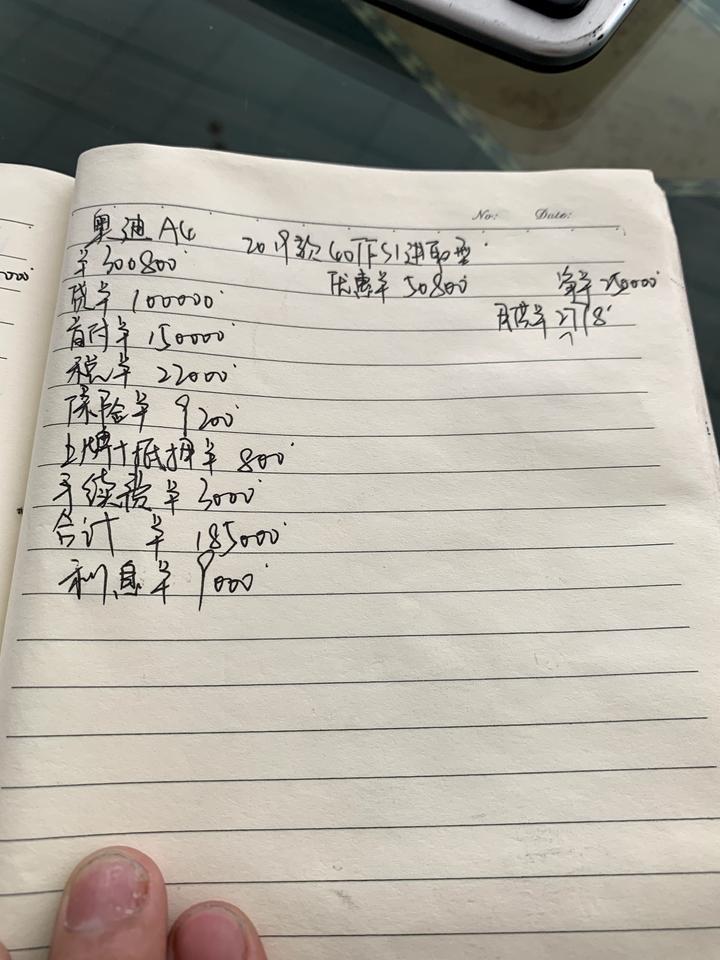 No: Date:
奥迪 A4 2019款 40TFSI进取型
¥300800
优惠¥50800
贷¥100000
首付¥150000
月供¥2778
税¥22000
保险¥9200
上牌+抵押¥800
手续费¥3000
合计 ¥185000
利息¥9000
000